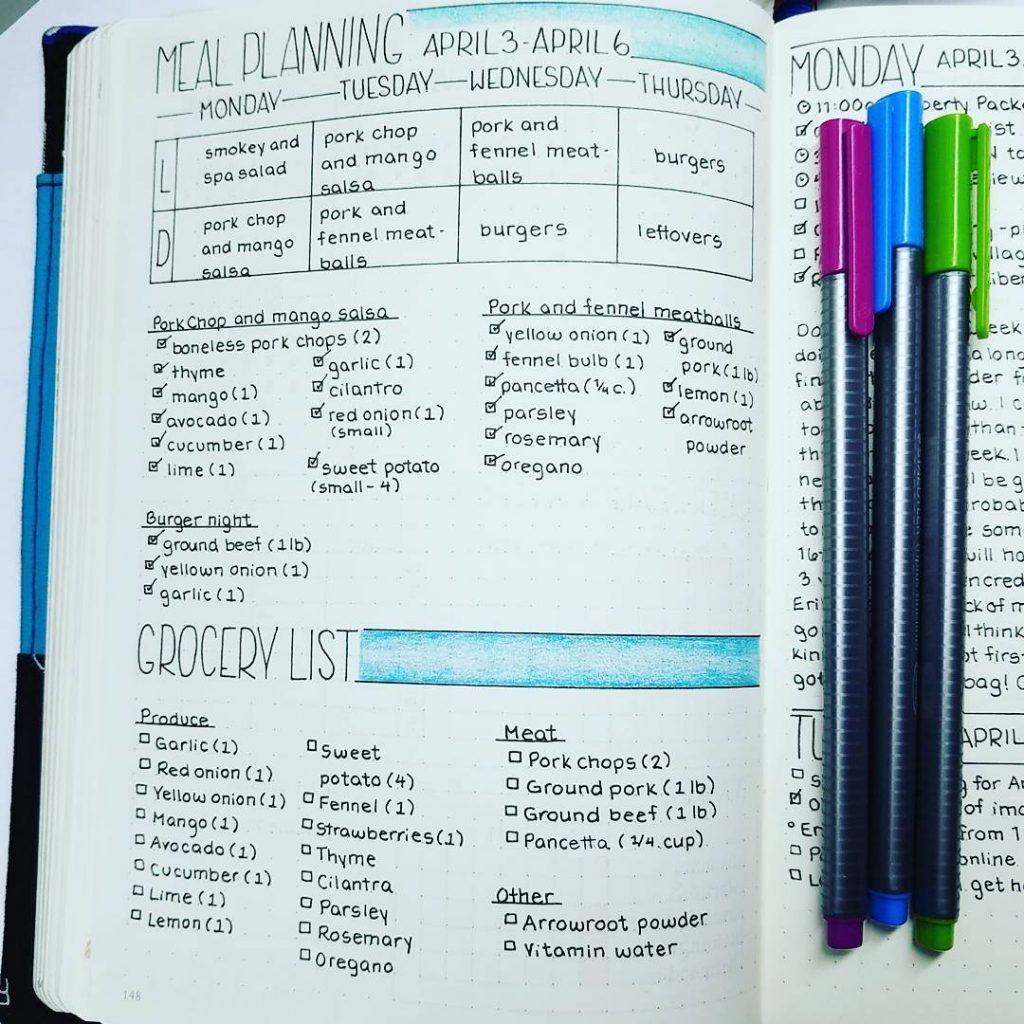 MEAL PLANNING APRIL 3-APRIL 6
MONDAY TUESDAY WEDNESDAY THURSDAY
L
smokey and
spa salad
pork chop
and mango
salsa
pork and
fennel meat-
balls
burgers
D
pork chop
and mango
salsa
pork and
fennel meat-
balls
burgers
leftovers
Pork Chop and mango salsa
boneless pork chops (2)
thyme
mango (1)
avocado (1)
cucumber (1)
lime (1)
garlic (1)
cilantro
red onion (1)
(small)
sweet potato
(small-4)
Pork and fennel meatballs
yellow onion (1)
fennel bulb (1)
pancetta (1/4 c.)
parsley
rosemary
oregano
ground
pork (1 lb)
lemon (1)
arrowroot
powder
Burger night
ground beef (1 lb)
yellown onion (1)
garlic (1)
GROCERY LIST
Produce
Garlic (1)
Red onion (1)
Yellow onion (1)
Mango (1)
Avocado (1)
Cucumber (1)
Lime (1)
Lemon (1)
Sweet
potato (4)
Fennel (1)
Strawberries (1)
Thyme
Cilantra
Parsley
Rosemary
Oregano
Meat
Pork chops (2)
Ground pork (1 lb)
Ground beef (1 lb)
Pancetta (1/4 cup)
Other
Arrowroot powder
Vitamin water
148
MONDAY APRIL 3
11:00
to
week. I
than
be
will
think
first
bag!
APRIL
for
of
from 1
online
get